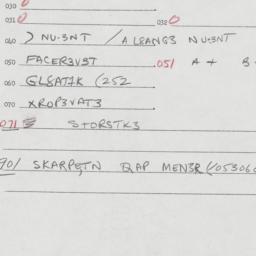 030 0
031 0 032 0
040 > NU-3NT / ALEANG3 NU3NT
050 FACER3V3T .051 A +
060 GL8AT1K (252
070 XROP3VAT3
071 STORSTK3
90/ SKARPETN QAP MEN3R (/05306